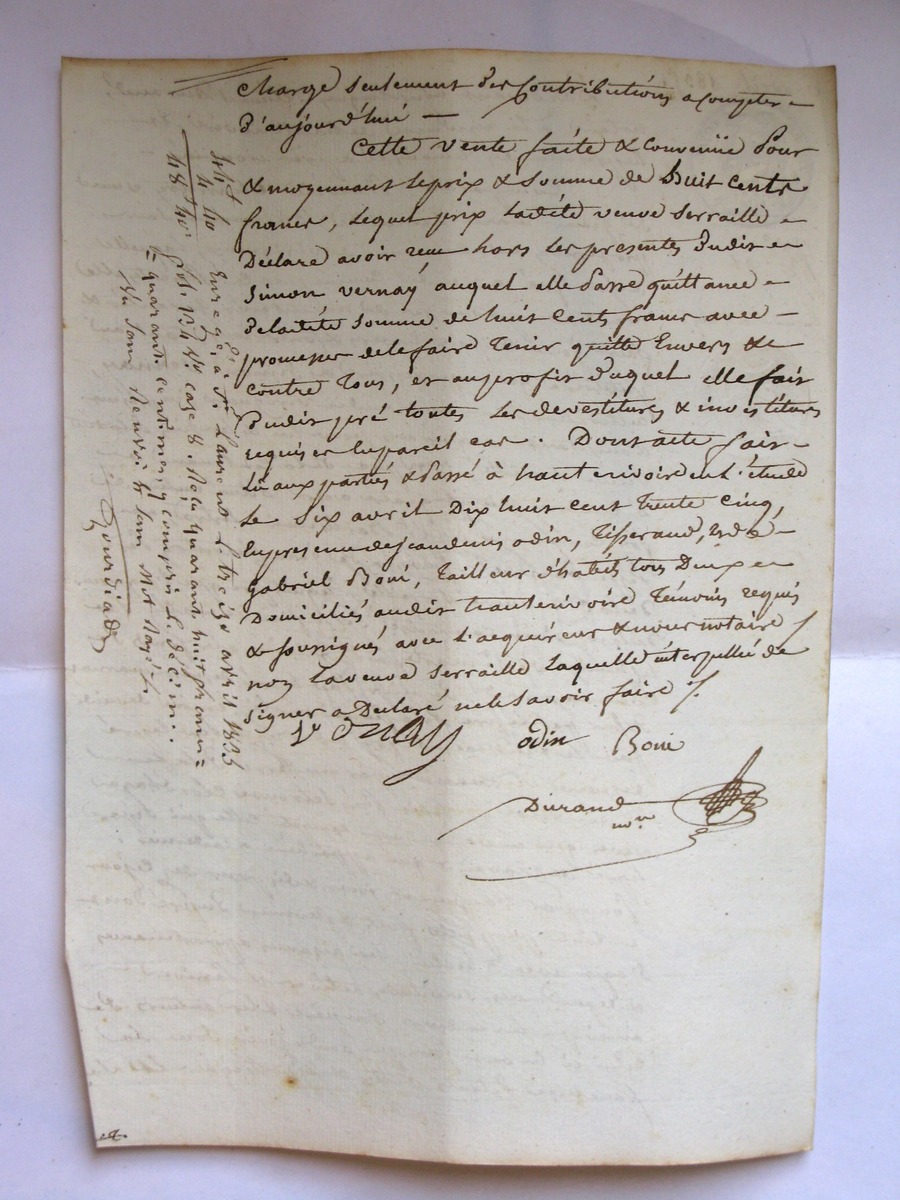 charge seulement des contributions a compter
d'aujourd'hui —
Cette vente faite & convenüe pour
& moyennant le prix & somme de huit cents
francs, lequel prix ladite veuve Serraille
Déclare avoir reçu hors les presentes dudit
Simon Vernay auquel elle passe quittance
de ladite somme de huit cents francs avec —
promesse de le faire tenir quitte Envers &
contre tous, et au profit duquel elle fait
dudit pré toutes les devestitures & investitures
requises en pareil cas. Dont acte fait
Lu aux parties & passé à hauterivoire en l'étude
Le Six avril Dix huit cent trente cinq,
En presence de jean denis odin, Tisserand, & de
gabriel Boni, Tailleur d'habits tous Deux
Domiciliés audit hauterivoire Témoins requis
& soussignés avec l'acquéreur & nous notaire
non la veuve Serraille laquelle interpellée de
signer a Declaré ne le savoir faire ./.
Vernay odin Boni
Durand
nore
44f 40
4 40
48 40
Enregé. à St. Laurent L. treize avril 1835
fol. 134 Vo. case 8. Reçu quarante huit francs
quarante centimes, y compris le décime.